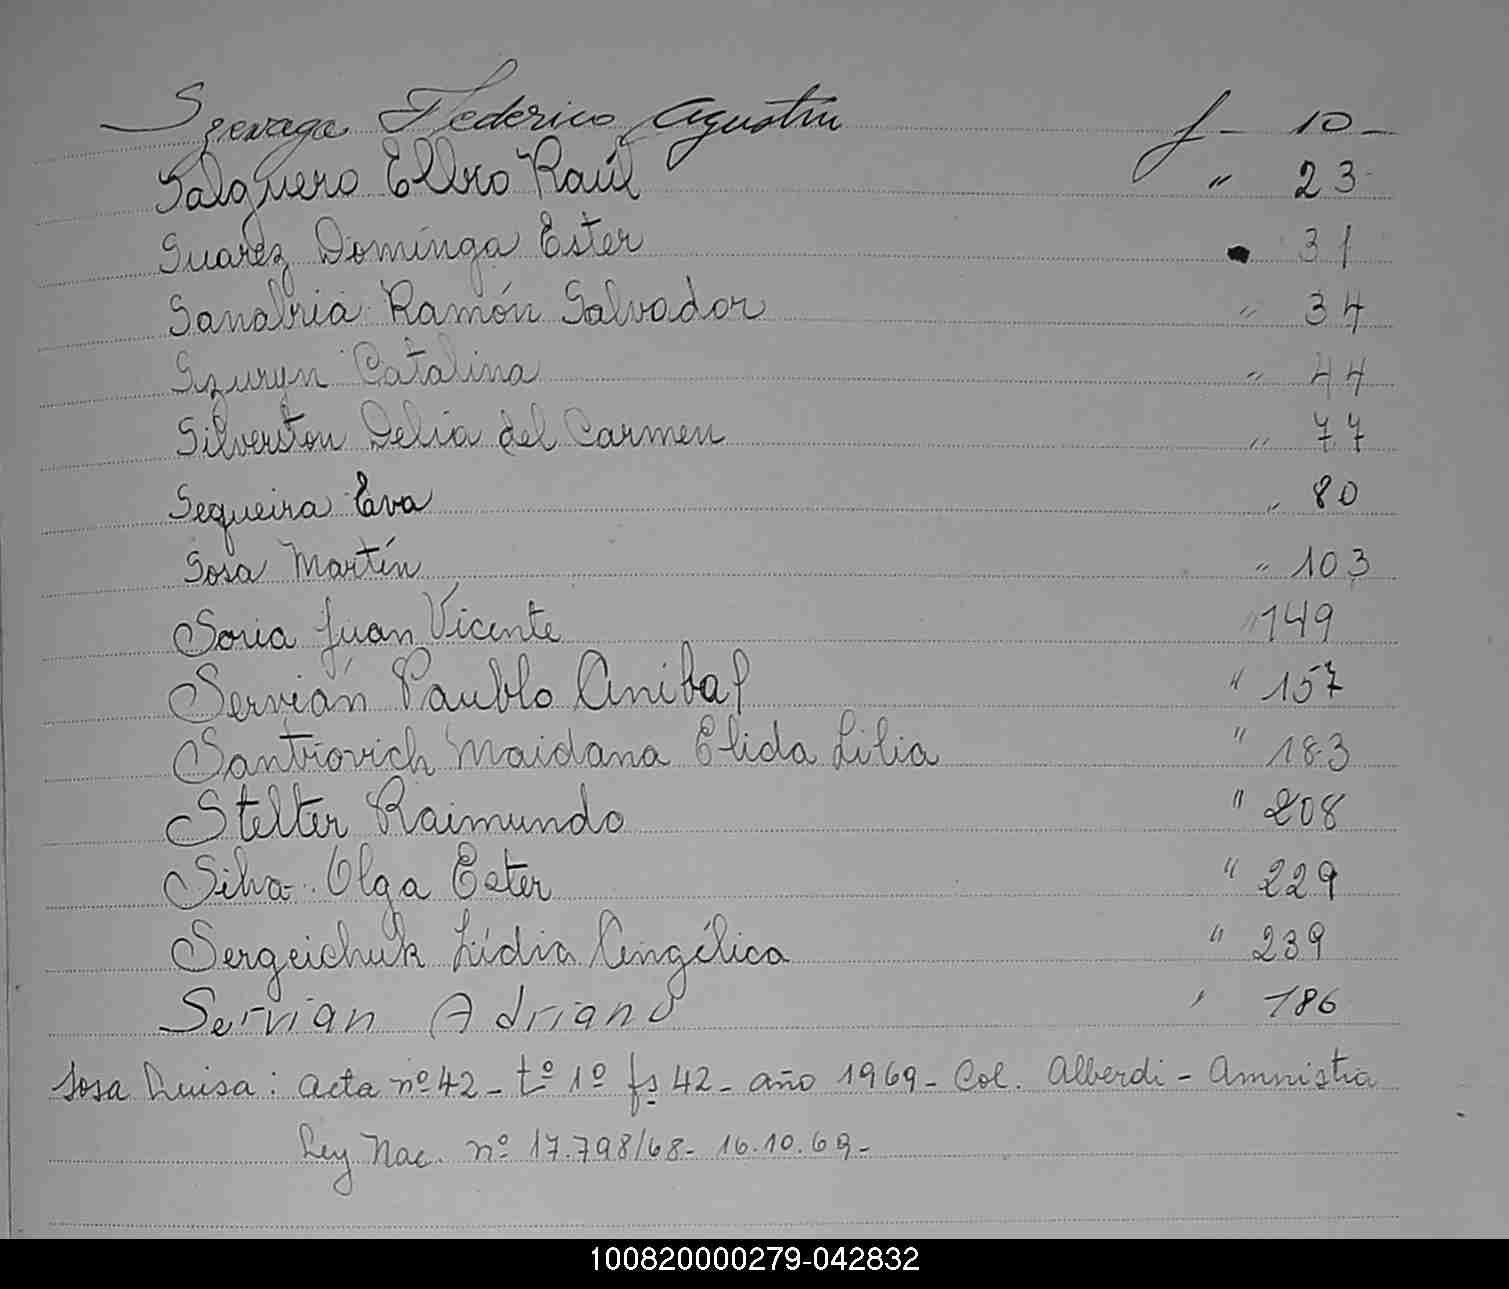 Szevaga Federico Agustin f - 10 -
Salguero Elbio Raúl " 23
Suarez Dominga Ester 31
Sanabria Ramón Salvador " 34
Szuryn Catalina " 44
Silverston Delia del Carmen " 77
Sequeira Eva " 80
Sosa Martín " 103
Soria Juan Vicente " 149
Servián Paublo Anibal " 157
Santriovich Maidana Elida Lilia " 183
Stelter Raimundo " 208
Silva Olga Ester " 229
Sergeichuk Lídia Angélica " 239
Servian Adriano ' 186
Sosa Luisa: acta nº 42 - tº 1º fs 42 - año 1969 - Col. Alberdi - Amnistia
Ley Nac. nº 17.798/68 - 16.10.69 -
100820000279-042832